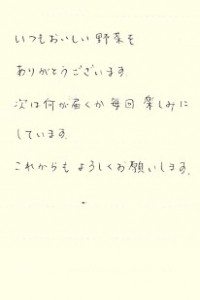 いつもおいしい野菜を
ありがとうございます.
次は何が届くか毎回楽しみに
しています.
これからもよろしくお願いします.